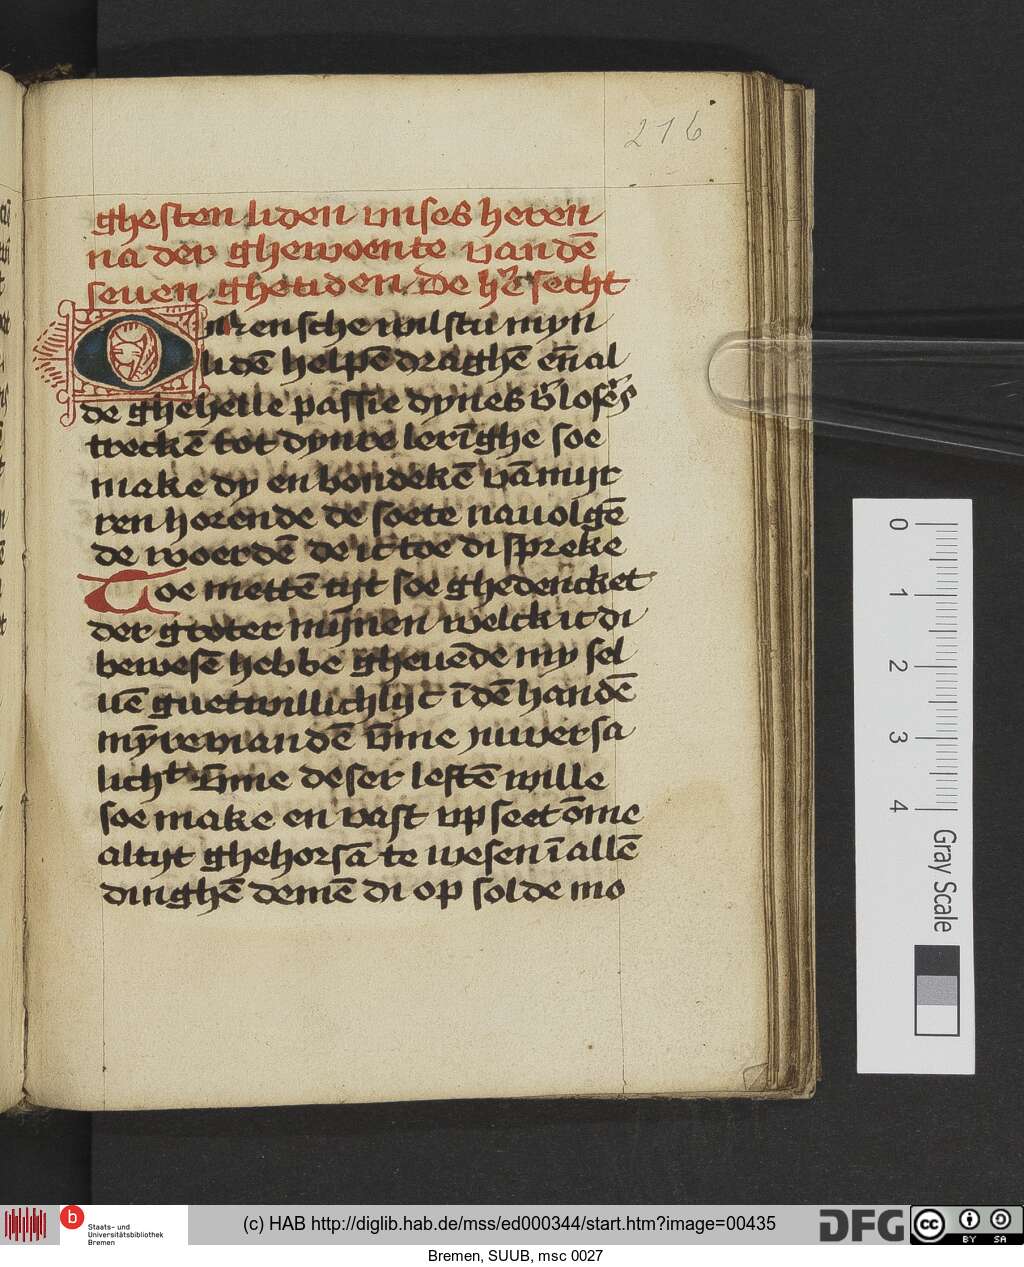 216
ghesten liden unses heren
na der ghewoente van dē
seuen ghetiden. De hē secht
O mensche wilstu myn
lidē helpē draghē en̄ al
de ghehelle passie dynes v̄losers
treckē tot dynre lerīghe soe
make dy en bondekē vā myr
ren horende de soete nauolgē
de woerdē de ic toe di spreke
Toe mettē tijt soe ghedencket
der groter mȳnen welck ic di
bewesē hebbe gheuēde my sel
uē guetwillichlijc ī dē handē
mȳre viandē v̄me juwer sa
lich^t v̄me deser lestē wille
soe make en vast upseet ōme
altijt ghehorsā te wesen ī allē
dinghē demē di op solde mo
0 1 2 3 4
Gray Scale
b Staats- und
Universitätsbibliothek
Bremen
(c) HAB http://diglib.hab.de/mss/ed000344/start.htm?image=00435
DFG
cc BY SA
Bremen, SUUB, msc 0027